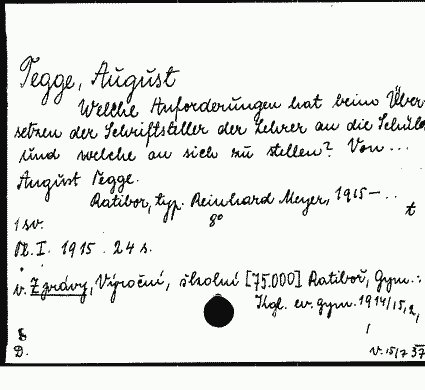 Tegge, August
Welche Anforderungen hat beim Über-
setzen der Schriftsteller der Lehrer an die Schüler
und welche an sich zu stellen? Von ...
August Tegge.
Ratibor, typ. Reinhard Meyer, 1915 - ..
8° t
1 sv.
1915. 24 s.
v. Zprávy, Výroční, školní [75.000] Ratiboř, Gym.:
Kgl. ev. gym. 1914/15,
D.